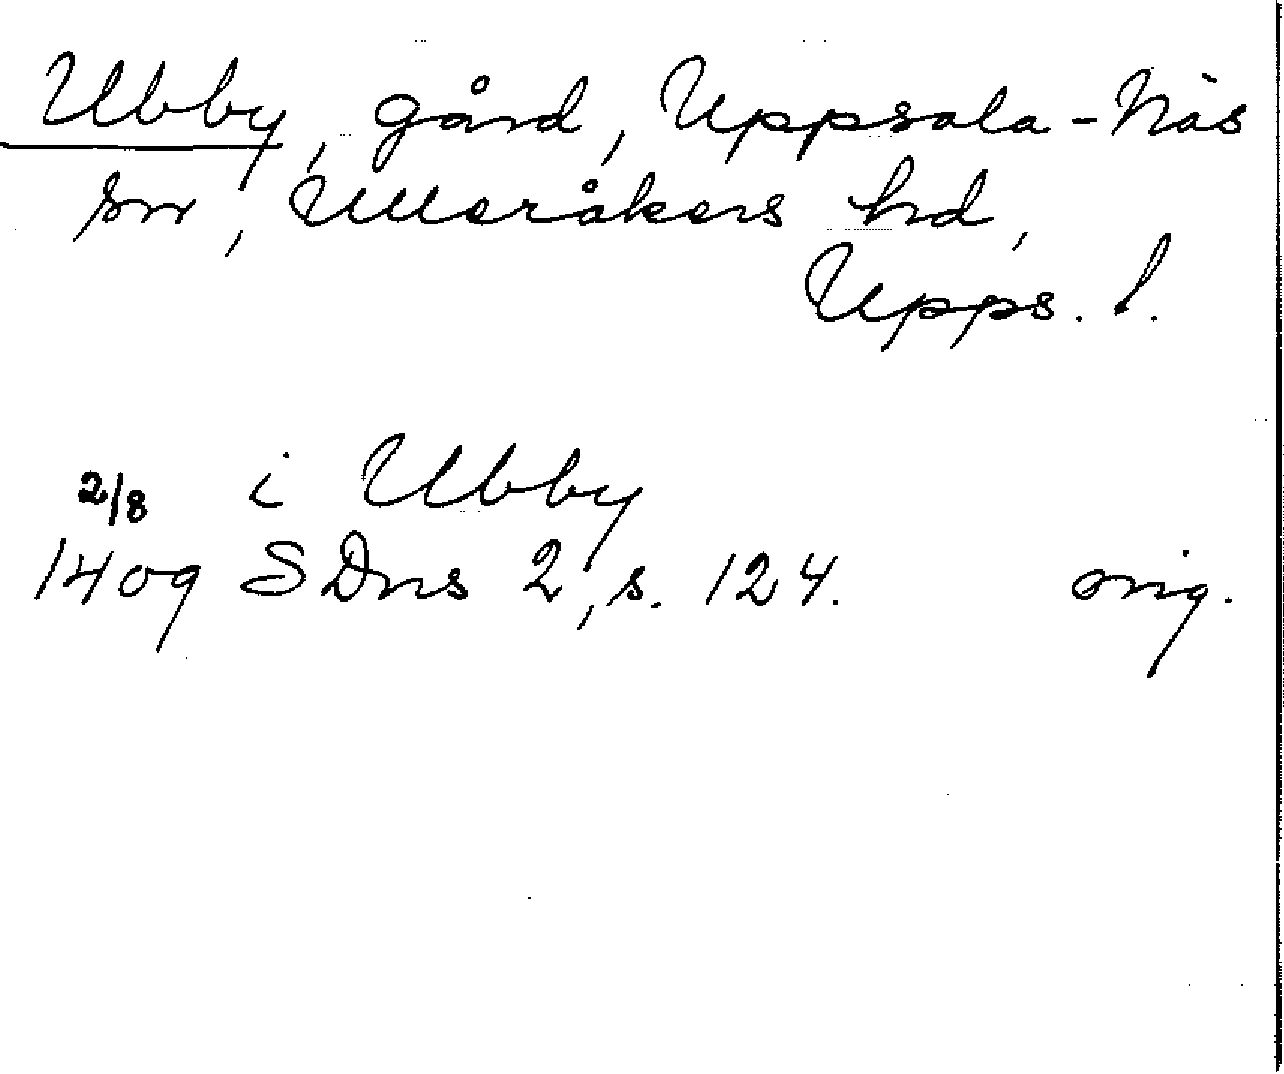 Ubby, gård, Uppsala-Näs
sn, Ulleråkers hd,
Upps. l.
2/8 i Ubby
1409 SDns 2, s. 124. orig.